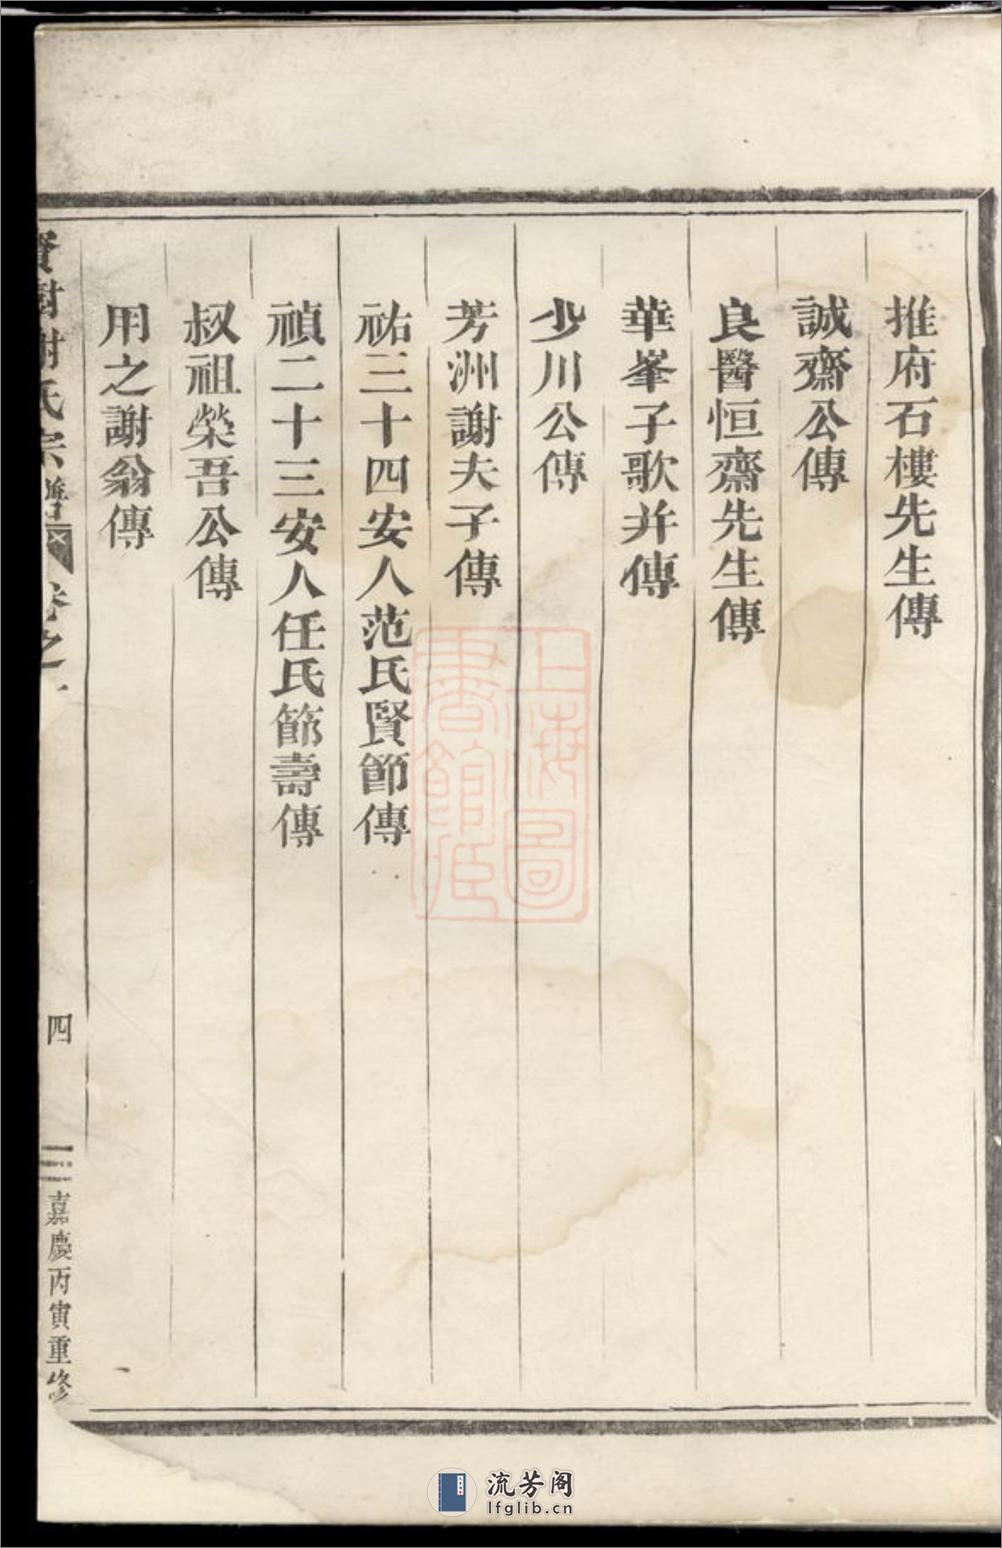 推府石樓先生傳
誠齋公傳
良醫恒齋先生傳
華峯子歌并傳
少川公傳
芳洲謝夫子傳
祐三十四安人范氏賢節傳
禎二十三安人任氏節壽傳
叔祖榮吾公傳
用之謝翁傳
樹謝氏宗譜
卷之一
四
嘉慶丙寅重修
上海圖書館藏
流芳阁
lfglib.cn